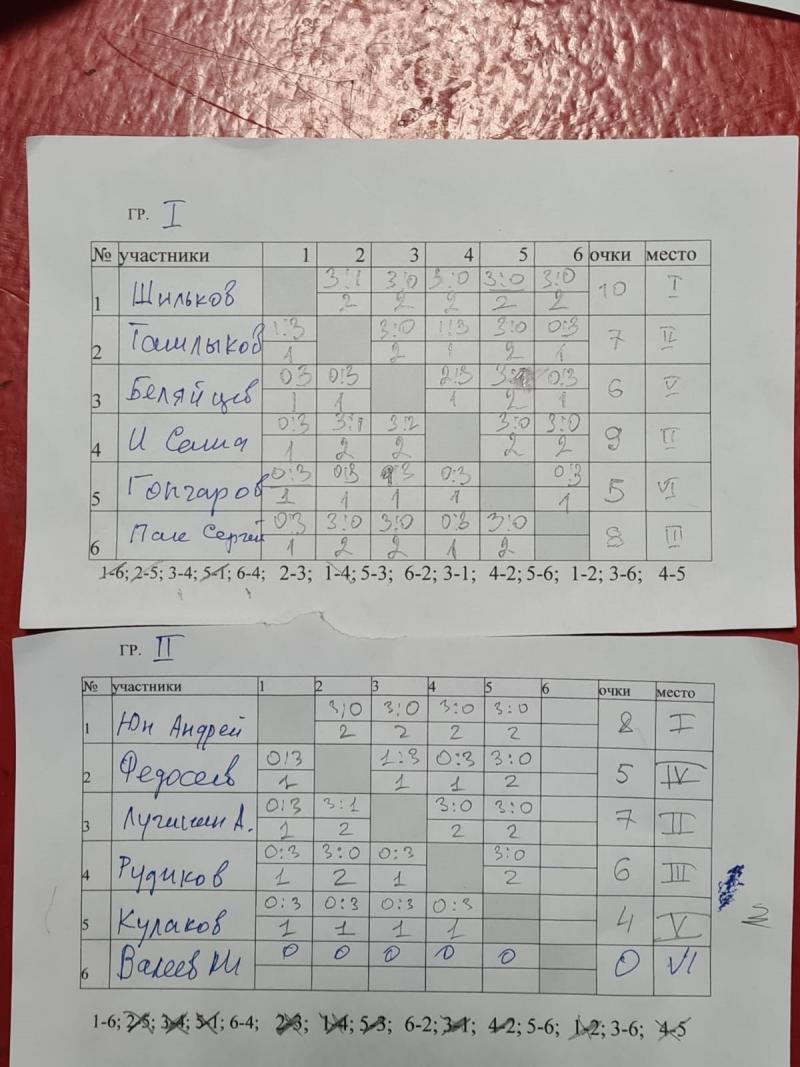 ГР. I
№ участники 1 2 3 4 5 6 очки место
1 Шильков 3:1 3:0 3:0 3:0 3:0 10 I
2 2 2 2 2
2 Ташлыков 1:3 3:0 1:3 3:0 0:3 7
1 2 1 2 1
3 Беляйцев 0:3 0:3 2:3 0:3 6 V
1 1 1 2 1
4 И Саша 0:3 3:1 3:2 3:0 3:0 9 II
1 2 2 2 2
5 Гончаров 0:3 0:3 0:3 0:3 5 VI
1 1 1 1 1
6 Пак Сергей 0:3 3:0 3:0 0:3 3:0 8 III
1 2 2 1 2
1-6; 2-5; 3-4; 5-1; 6-4; 2-3; 1-4; 5-3; 6-2; 3-1; 4-2; 5-6; 1-2; 3-6; 4-5
ГР. II
№ участники 1 2 3 4 5 6 очки место
1 Юн Андрей 3:0 3:0 3:0 3:0 8 I
2 2 2 2
2 Федосеев 0:3 1:3 0:3 3:0 5 IV
1 1 1 2
3 Лучинин А. 0:3 3:1 3:0 3:0 7 II
1 2 2 2
4 Рудиков 0:3 3:0 0:3 3:0 6 III
1 2 1 2
5 Кулаков 0:3 0:3 0:3 0:3 4 V
1 1 1 1
6 Валеев 0 0 0 0 0 0 VI
1-6; 2-5; 3-4; 5-1; 6-4; 2-3; 1-4; 5-3; 6-2; 3-1; 4-2; 5-6; 1-2; 3-6; 4-5